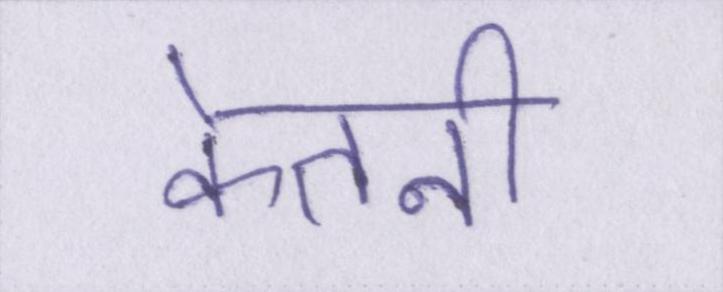 केतनी